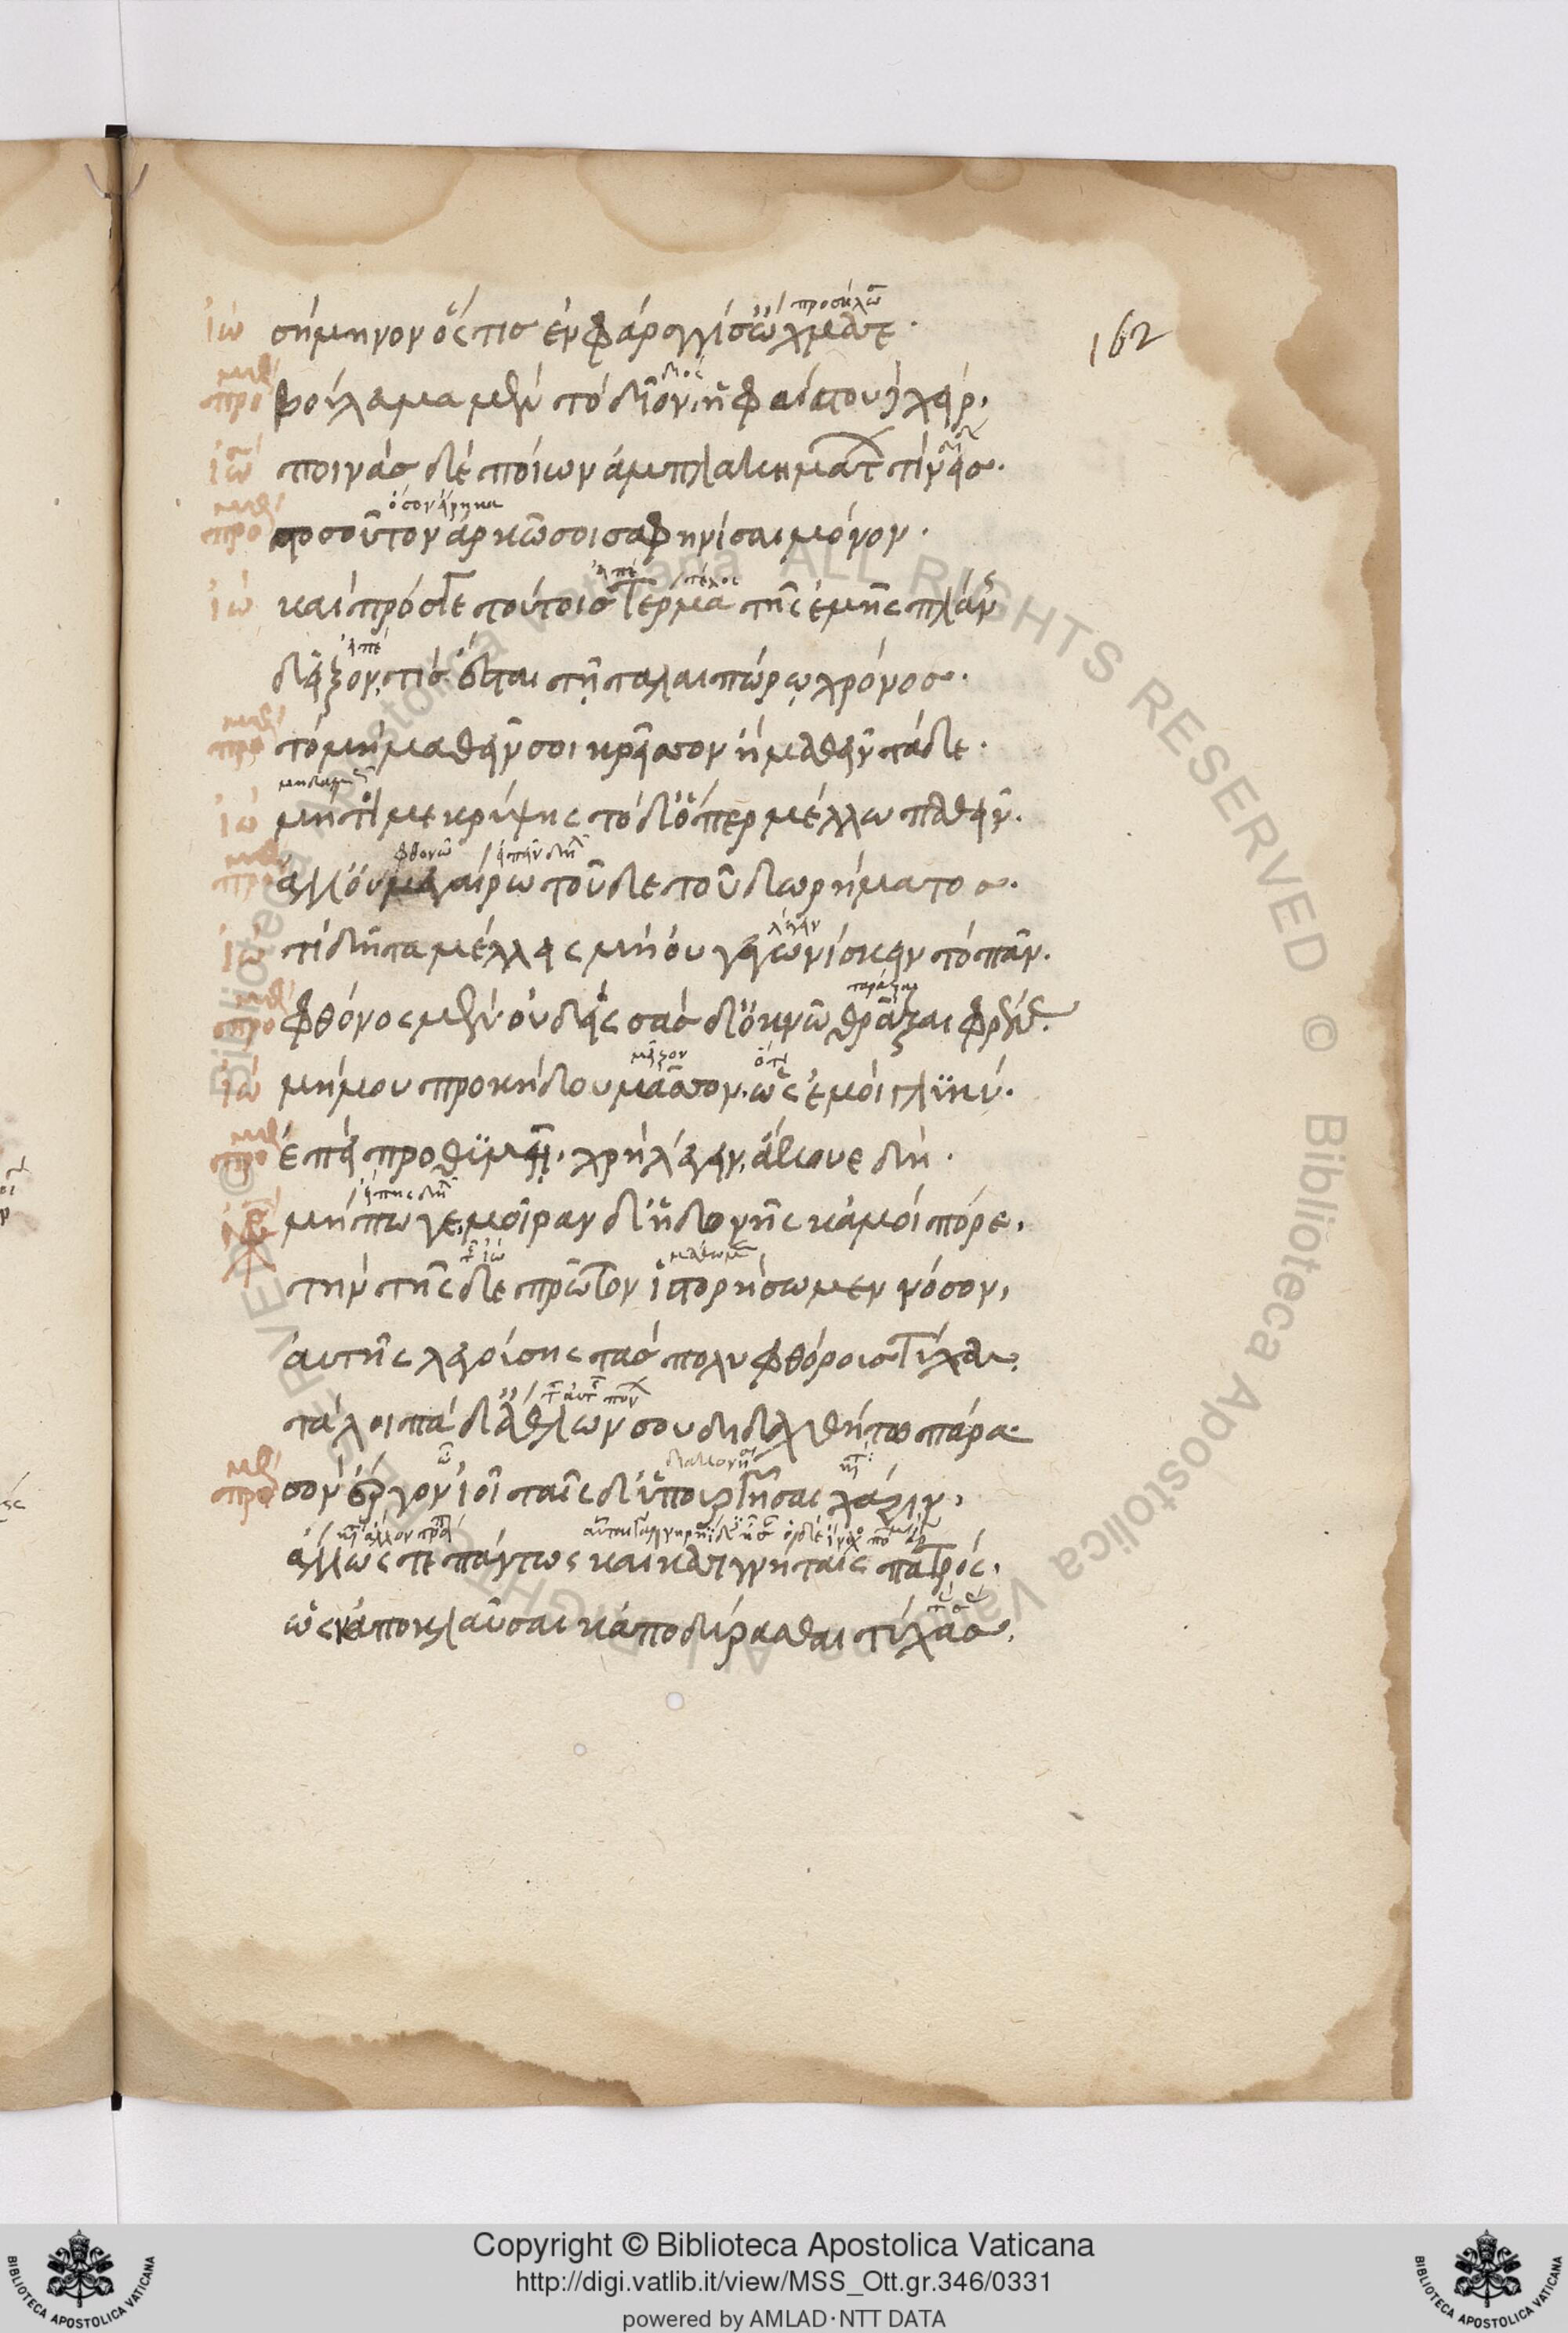 162
προσηλῶ
ἰώ σήμηνον ὅστις ἐν φάραγγί σ' ὤχμασε.
διὸς
προμηθ βούλευμα μὲν τὸ δῖον, ἡφαίστου δὲ χείρ.
ἰώ ποινὰς δὲ ποίων ἀμπλακημάτων τίνεις.
ὅσον εἴρηκα
προμηθ τοσοῦτον ἀρκῶ σοι σαφηνίσαι μόνον.
εἰπὲ τέλος
ἰώ καὶ πρός γε τούτοις τέρμα τῆς ἐμῆς πλάνης
εἰπὲ
δεῖξον, τίς ἔσται τῇ ταλαιπώρῳ χρόνος.
προμηθ τὸ μὴ μαθεῖν σοι κρεῖσσον ἢ μαθεῖν τάδε.
ἰώ μήτοι με κρύψῃς τοῦθ' ὅπερ μέλλω παθεῖν.
φθονῶ
προμηθ ἀλλ' οὐ μεγαίρω τοῦδε τοῦ δωρήματος.
λέγειν
ἰώ τί δῆτα μέλλεις μὴ οὐ γεγωνίσκειν τὸ πᾶν.
ταράξαι
προμηθ φθόνος μὲν οὐδείς, σὰς δ' ὀκνῶ θρᾶξαι φρένας.
μεῖζον ὅτι
ἰώ μή μου προκήδου μᾶσσον, ὡς ἐμοὶ γλυκύ.
προμηθ ἐπεὶ προθυμῇ, χρὴ λέγειν, ἄκουε δή.
μήπω γε, μοῖραν δ' ἡδονῆς κἀμοὶ πόρε,
τῆς ἰώ μάθωμεν
τὴν τῆσδε πρῶτον ἱστορήσωμεν νόσον,
αὐτῆς λεγούσης τὰς πολυφθόρους τύχας.
τὰ λοιπὰ δ' ἄθλων σοῦ διδαχθήτω πάρα
προμηθ σὸν ἔργον ἰοῖ ταῖσδ' ὑπουργῆσαι χάριν,
ἄλλως τε πάντως καὶ κασιγνήταις πατρός.
ὡς κἀποκλαῦσαι κἀποδύρασθαι τύχας.
Copyright © Biblioteca Apostolica Vaticana
http://digi.vatlib.it/view/MSS_Ott.gr.346/0331
powered by AMLAD·NTT DATA
BIBLIOTECA APOSTOLICA VATICANA
BIBLIOTECA APOSTOLICA VATICANA
© Biblioteca Apostolica Vaticana ALL RIGHTS RESERVED © Biblioteca Apostolica Vaticana ALL RIGHTS RESERVED